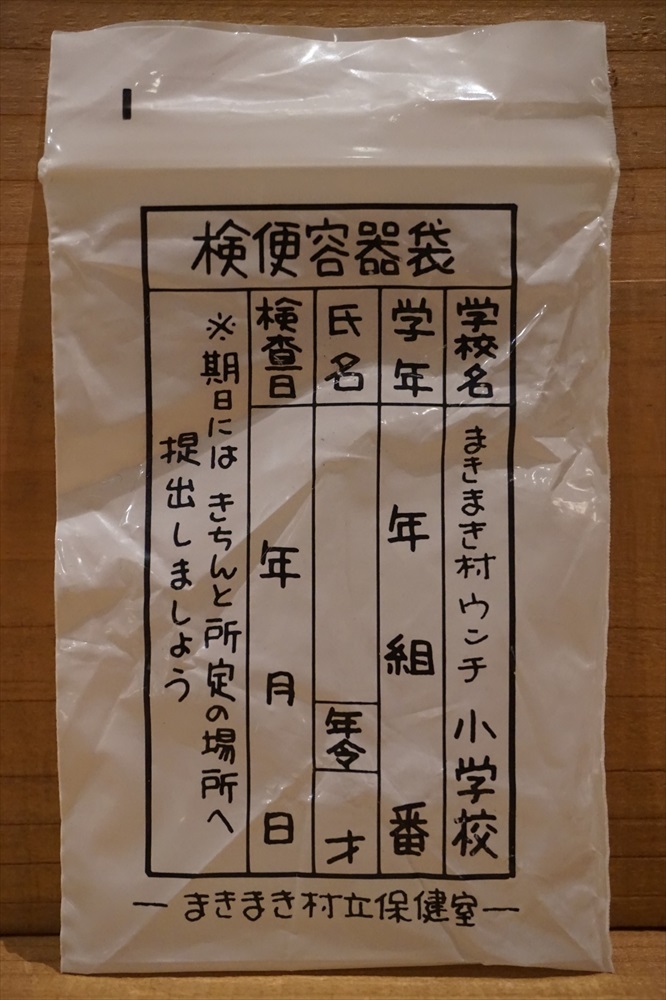 検便容器袋
学校名 まきまき村ウンチ小学校
学年 年 組 番
氏名 年令 才
検査日 年 月 日
※期日には きちんと所定の場所へ
提出しましょう
― まきまき村立保健室 ―